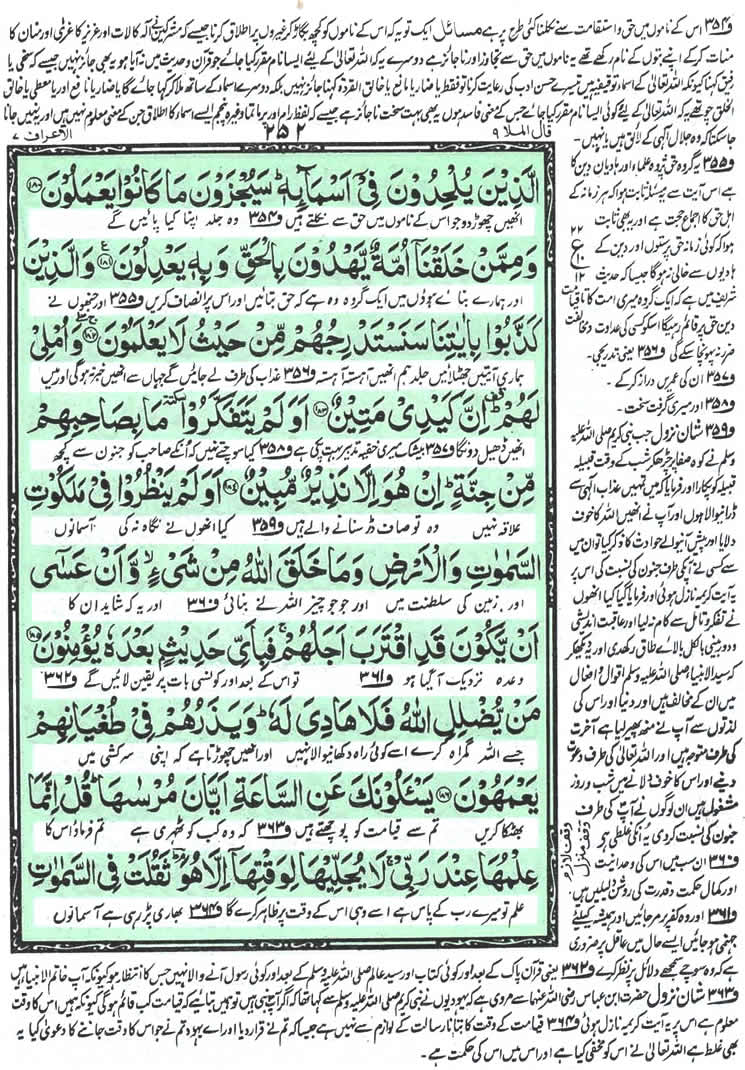 و۳۵۴ اس کے ناموں میں حق و استقامت سے نکلنا کئی طرح پر ہے مسائل ایک تو یہ کہ اس کے ناموں کو کچھ بگاڑ کر غیروں پر اطلاق کرنا جیسے کہ مشرکین نے الٰہ کا لات اور عزیز کا عزّیٰ اور منان کا
منات کر کے اپنے بتوں کے نام رکھے تھے یہ ناموں میں حق سے تجاوز اور ناجائز ہے دوسرے یہ کہ اللہ تعالیٰ کے لئے ایسا نام مقرر کیا جائے جو قرآن و حدیث میں نہ آیا ہو یہ بھی جائز نہیں جیسے کہ سخی یا
الاعراف ۷
۲۵۲
قال الملا ۹
الَّذِيْنَ يُلْحِدُوْنَ فِيْٓ اَسْمَآئِهٖ ؕ سَيُجْزَوْنَ مَا كَانُوْا يَعْمَلُوْنَ ۱۸۰
انھیں چھوڑ دو جو اس کے ناموں میں حق سے نکلتے ہیں و۳۵۴ وہ جلد اپنا کیا پائیں گے
وَمِمَّنْ خَلَقْنَآ اُمَّةٌ يَّهْدُوْنَ بِالْحَقِّ وَبِهٖ يَعْدِلُوْنَ ۱۸۱ وَالَّذِيْنَ
اور ہمارے بنائے ہوؤں میں ایک گروہ وہ ہے کہ حق بتائیں اور اس پر انصاف کریں و۳۵۵ اور جنھوں نے
كَذَّبُوْا بِاٰيٰتِنَا سَنَسْتَدْرِجُهُمْ مِّنْ حَيْثُ لَا يَعْلَمُوْنَ ۱۸۲ وَاُمْلِيْ
ہماری آیتیں جھٹلائیں جلد ہم انھیں آہستہ آہستہ و۳۵۶ عذاب کی طرف لے جائیں گے جہاں سے انھیں خبر نہ ہوگی اور میں
لَهُمْ ؕ اِنَّ كَيْدِيْ مَتِيْنٌ ۱۸۳ اَوَلَمْ يَتَفَكَّرُوْا مَا بِصَاحِبِهِمْ
انھیں ڈھیل دونگا و۳۵۷ بیشک میری خفیہ تدبیر بہت پکی ہے و۳۵۸ کیا سوچتے نہیں کہ انکے صاحب کو جنون سے کچھ
مِّنْ جِنَّةٍ ؕ اِنْ هُوَ اِلَّا نَذِيْرٌ مُّبِيْنٌ ۱۸۴ اَوَلَمْ يَنْظُرُوْا فِيْ مَلَكُوْتِ
علاقہ نہیں وہ تو صاف ڈر سنانے والے ہیں و۳۵۹ کیا انھوں نے نگاہ نہ کی آسمانوں
السَّمٰوٰتِ وَالْاَرْضِ وَمَا خَلَقَ اللّٰهُ مِنْ شَيْءٍ ۙ وَّاَنْ عَسٰٓى
اور زمین کی سلطنت میں اور جو جو چیز اللہ نے بنائی و۳۶۰ اور یہ کہ شاید ان کا
اَنْ يَّكُوْنَ قَدِ اقْتَرَبَ اَجَلُهُمْ ۚ فَبِاَيِّ حَدِيْثٍۭ بَعْدَهٗ يُؤْمِنُوْنَ ۱۸۵
وعدہ نزدیک آگیا ہو و۳۶۱ تو اس کے بعد اور کونسی بات پر یقین لائیں گے و۳۶۲
مَنْ يُّضْلِلِ اللّٰهُ فَلَا هَادِيَ لَهٗ ؕ وَيَذَرُهُمْ فِيْ طُغْيَانِهِمْ
جسے اللہ گمراہ کرے اسے کوئی راہ دکھانیوالا نہیں اور انھیں چھوڑتا ہے کہ اپنی سرکشی میں
يَعْمَهُوْنَ ۱۸۶ يَسْـَٔلُوْنَكَ عَنِ السَّاعَةِ اَيَّانَ مُرْسٰىهَا ؕ قُلْ اِنَّمَا
بھٹکا کریں تم سے قیامت کو پوچھتے ہیں و۳۶۳ کہ وہ کب کو ٹھہری ہے تم فرماؤ اس کا
عِلْمُهَا عِنْدَ رَبِّيْ ۚ لَا يُجَلِّيْهَا لِوَقْتِهَآ اِلَّا هُوَ ؕ ثَقُلَتْ فِي السَّمٰوٰتِ
علم تو میرے رب کے پاس ہے اسے وہی اس کے وقت پر ظاہر کرے گا و۳۶۴ بھاری پڑ رہی ہے آسمانوں
جا سکتا کہ وہ جلال الٰہی کے لائق ہیں یا نہیں۔
و۳۵۵ یہ گروہ حق پژوہ علماء اور ہادیان دین کا
ہے اس آیت سے یہ مسئلہ ثابت ہوا کہ ہر زمانہ کے
اہل حق کا اجماع حجت ہے اور یہ بھی ثابت
ہوا کہ کوئی زمانہ حق پرستوں اور دین کے
ہادیوں سے خالی نہ ہوگا جیسا کہ حدیث
شریف میں ہے کہ ایک گروہ میری امت کا تا قیامت
دین حق پر قائم رہیگا اسکو کسی کی عداوت و مخالفت
ضرر نہ پہونچا سکے گی و۳۵۶ یعنی تدریجی۔
و۳۵۷ ان کی عمریں دراز کر کے۔
و۳۵۸ اور میری گرفت سخت۔
و۳۵۹ شان نزول جب نبی کریم صلی اللہ علیہ
وسلم نے کوہ صفا پر چڑھکر شب کے وقت قبیلہ
قبیلہ کو پکارا اور فرمایا کہ میں تمہیں عذاب الٰہی سے
ڈرانیوالا ہوں اور آپ نے انھیں اللہ کا خوف
دلایا اور پیش آنیوالے حوادث کا ذکر کیا تو ان میں
سے کسی نے آپکی طرف جنون کی نسبت کی اس پر
یہ آیت کریمہ نازل ہوئی اور فرمایا گیا کیا انھوں
نے فکر و تامل سے کام نہ لیا اور عاقبت اندیشی
و دوربینی بالکل بالائے طاق رکھدی اور یہ دیکھکر
کہ سید الانبیا صلی اللہ علیہ وسلم اقوال و افعال
میں ان کے مخالف ہیں اور دنیا اور اس کی
لذتوں سے آپ نے منھ پھیر لیا ہے آخرت
کی طرف متوجہ ہیں اور اللہ تعالیٰ کی طرف دعوت
دینے اور اس کا خوف دلانے میں شب و روز
مشغول ہیں ان لوگوں نے آپ کی طرف
جنون کی نسبت کردی یہ انکی غلطی ہے
و۳۶۰ ان سب میں اس کی وحدانیت
اور کمال حکمت و قدرت کی روشن دلیلیں ہیں
و۳۶۱ اور وہ کفر پر مر جائیں اور ہمیشہ کیلئے
جہنمی ہو جائیں ایسے حال میں عاقل پر ضروری
ہے کہ وہ سوچے سمجھے دلائل پر نظر کرے و۳۶۲ یعنی قرآن پاک کے بعد اور کوئی کتاب اور سید عالم صلی اللہ علیہ وسلم کے بعد اور کوئی رسول آنے والا نہیں جس کا انتظار ہو کیونکہ آپ خاتم الانبیا ہیں
و۳۶۳ شان نزول حضرت ابن عباس رضی اللہ عنہما سے مروی ہے کہ یہودیوں نے نبی کریم صلی اللہ علیہ وسلم سے کہا تھا کہ اگر آپ نبی ہیں تو ہمیں بتائیے کہ قیامت کب قائم ہوگی کیونکہ ہمیں اس کا وقت
معلوم ہے اس پر یہ آیت کریمہ نازل ہوئی و۳۶۴ قیامت کے وقت کا بتانا رسالت کے لوازم سے نہیں ہے جیسا کہ تم نے قرار دیا اور اے یہود تم نے جو اس کا وقت جاننے کا دعویٰ کیا یہ
بھی غلط ہے اللہ تعالیٰ نے اس کو مخفی کیا ہے اور اس میں اس کی حکمت ہے۔